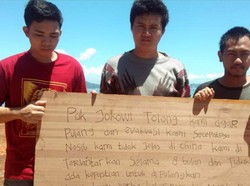 Pak Jokowi Tolong kami diChina
Pulang dan evakuasi kami secepatnya
Nasib kami tidak jelas di China kami di
Terlantarkan selama 2 bulan dan Tidak
ada kepastian untuk di Pulangkan